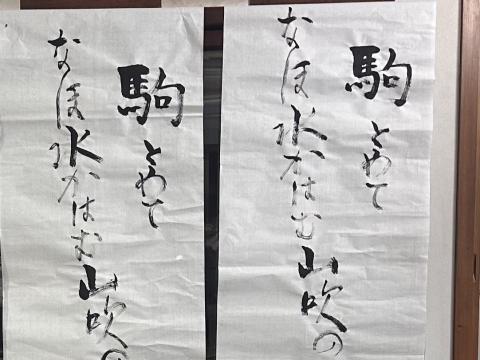 駒とめて
なほ水かはむ山吹の
駒とめて
なほ水かはむ山吹の